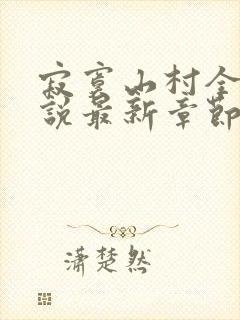 寂寞山村全
說最新章節
瀟楚然